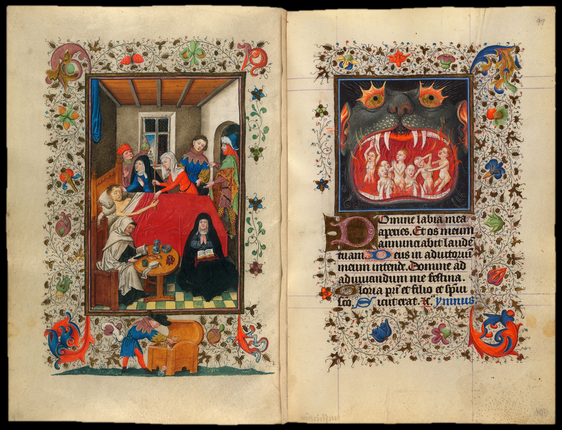 99
Domine labia mea
aperies. Et os meum
annunciabit laudē
tuam. Deus in adiutoriū
meum intende. Domine ad
adiuuandum me festina.
Gloria pr̄i et filio et spiri
sc̄o. Sicut erat. ⁊c. ymnus.